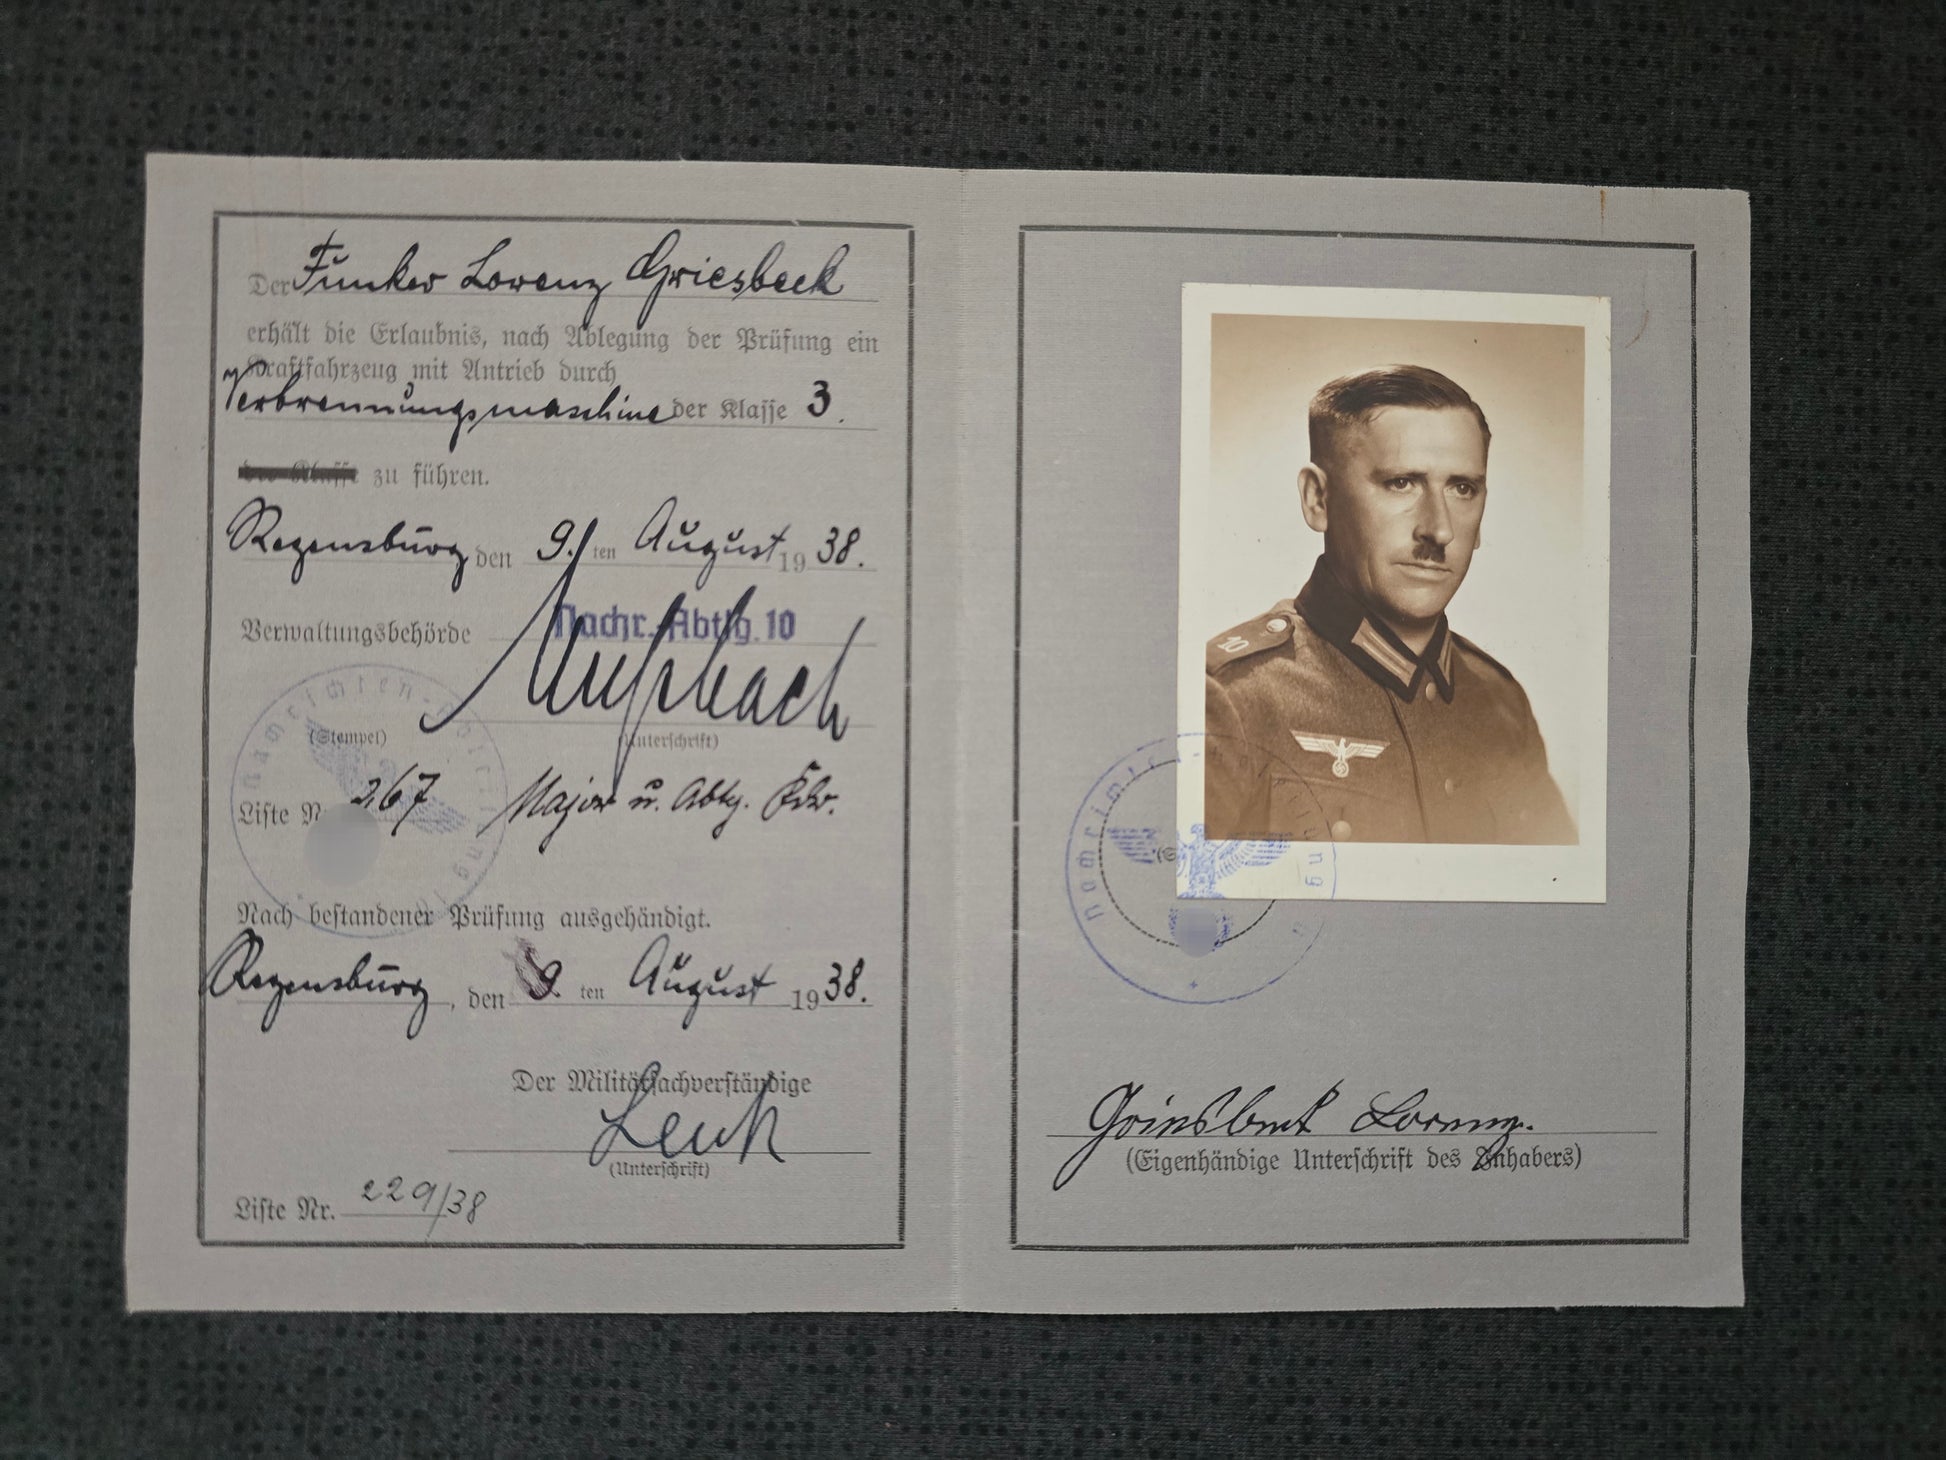 Der Funker Lorenz Griesbeck
erhält die Erlaubnis, nach Ablegung der Prüfung ein
Kraftfahrzeug mit Antrieb durch
Verbrennungsmaschine der Klasse 3.
der Klasse zu führen.
Regensburg den 9. ten August 1938.
Verwaltungsbehörde Nachr. Abtlg. 10
(Stempel) (Unterschrift)
Liste Nr. 267 Major u. Abtg. Kdr.
Nach bestandener Prüfung ausgehändigt.
Regensburg, den 9. ten August 1938.
Der Militärsachverständige
Lenk
(Unterschrift)
Liste Nr. 229/38
10
Nachrichten-Abteilung
Griesbeck Lorenz.
(Eigenhändige Unterschrift des Inhabers)